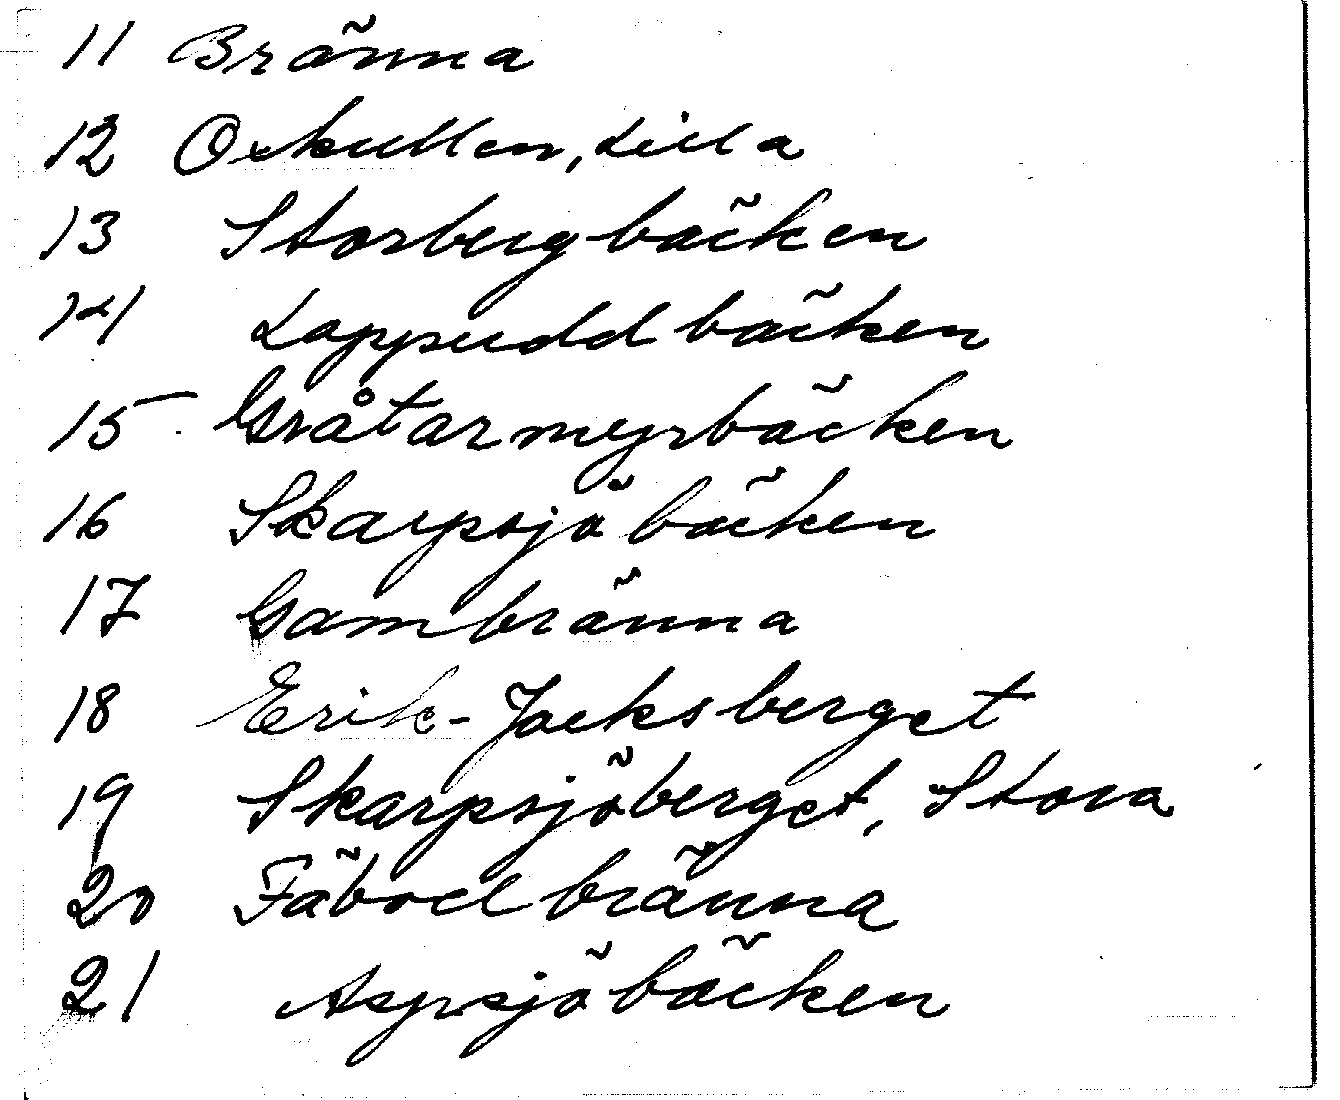 11 Bränna
12 Oxkullen, Lilla
13 Storbergbäcken
14 Lappuddbäcken
15 Gråtarmyrbäcken
16 Skarpsjöbäcken
17 Gambränna
18 Erik-Jacksberget
19 Skarpsjöberget, Stora
20 Fäbodbränna
21 Aspsjöbäcken